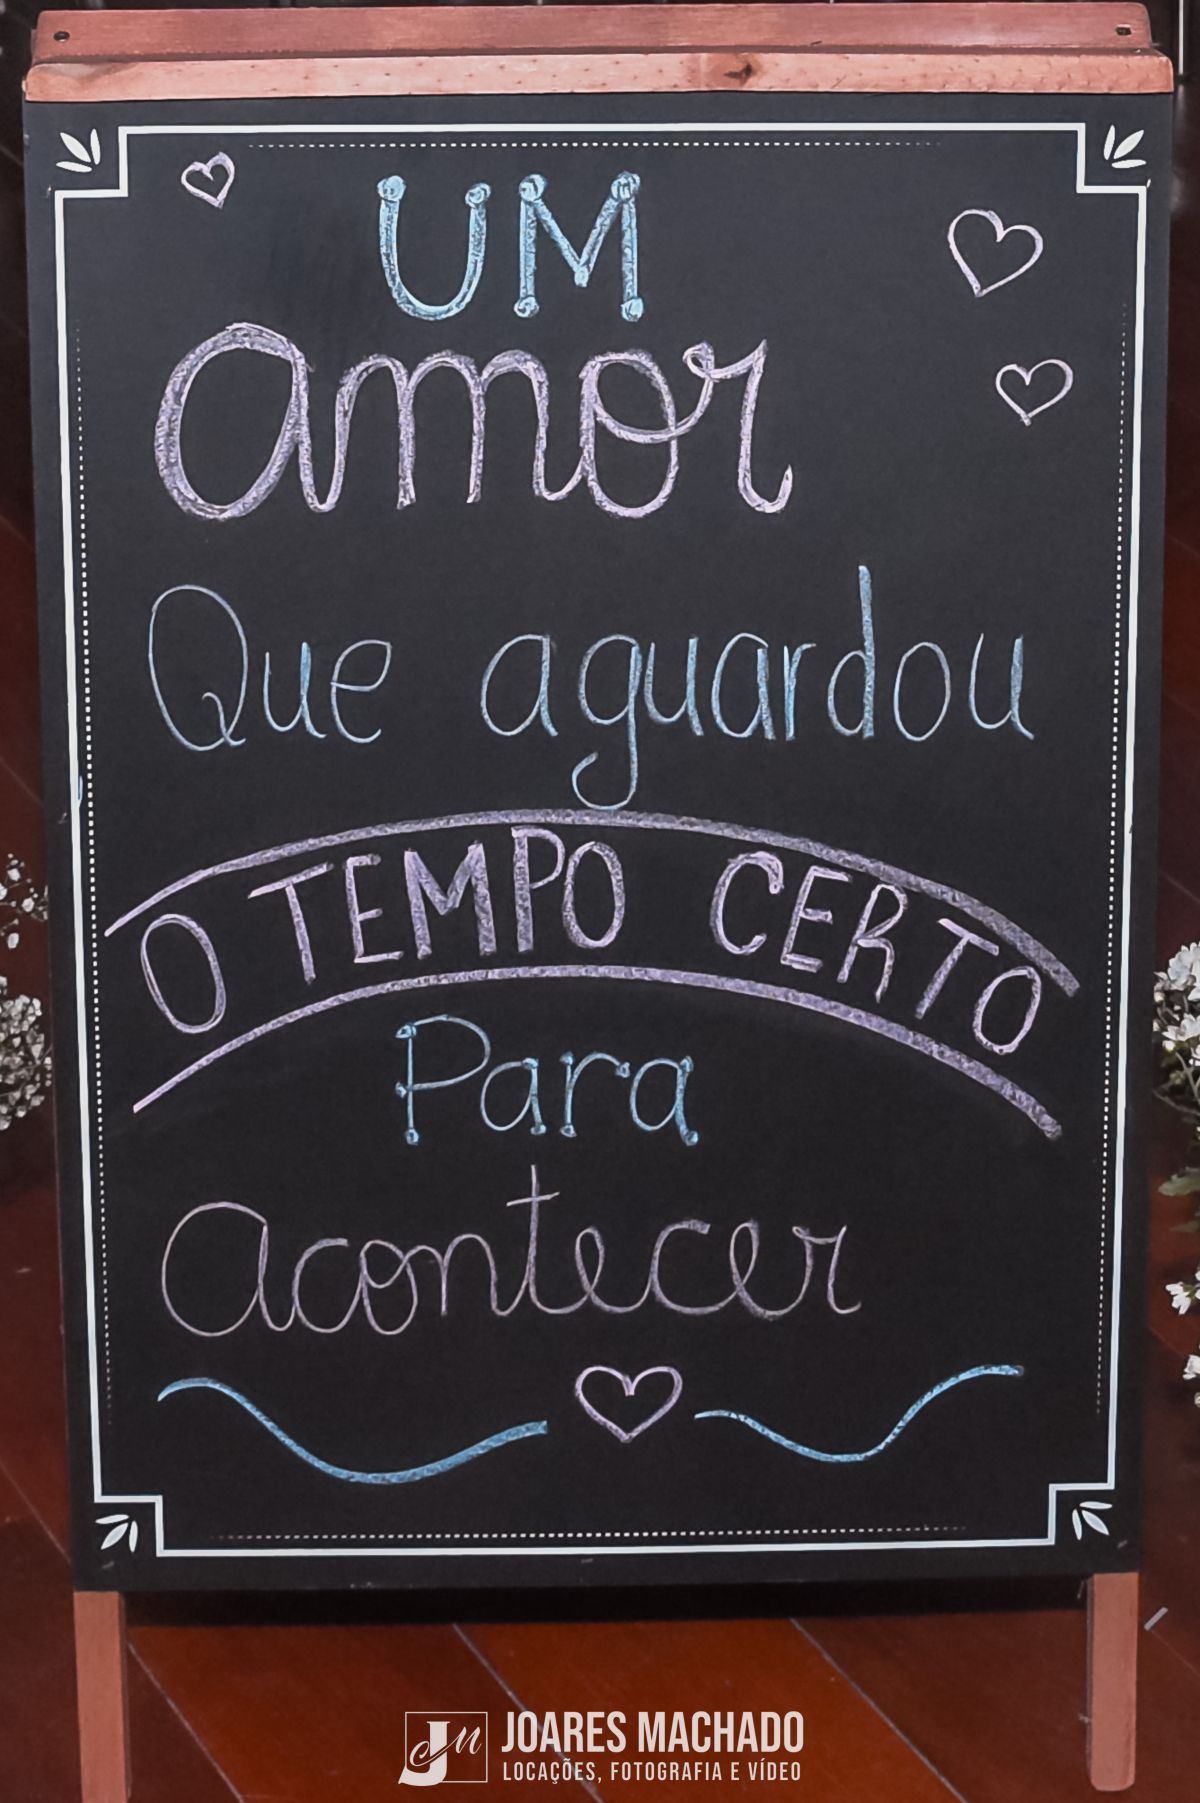 UM
amor
Que aguardou
O TEMPO CERTO
Para
Acontecer
JM JOARES MACHADO
LOCAÇÕES, FOTOGRAFIA E VÍDEO